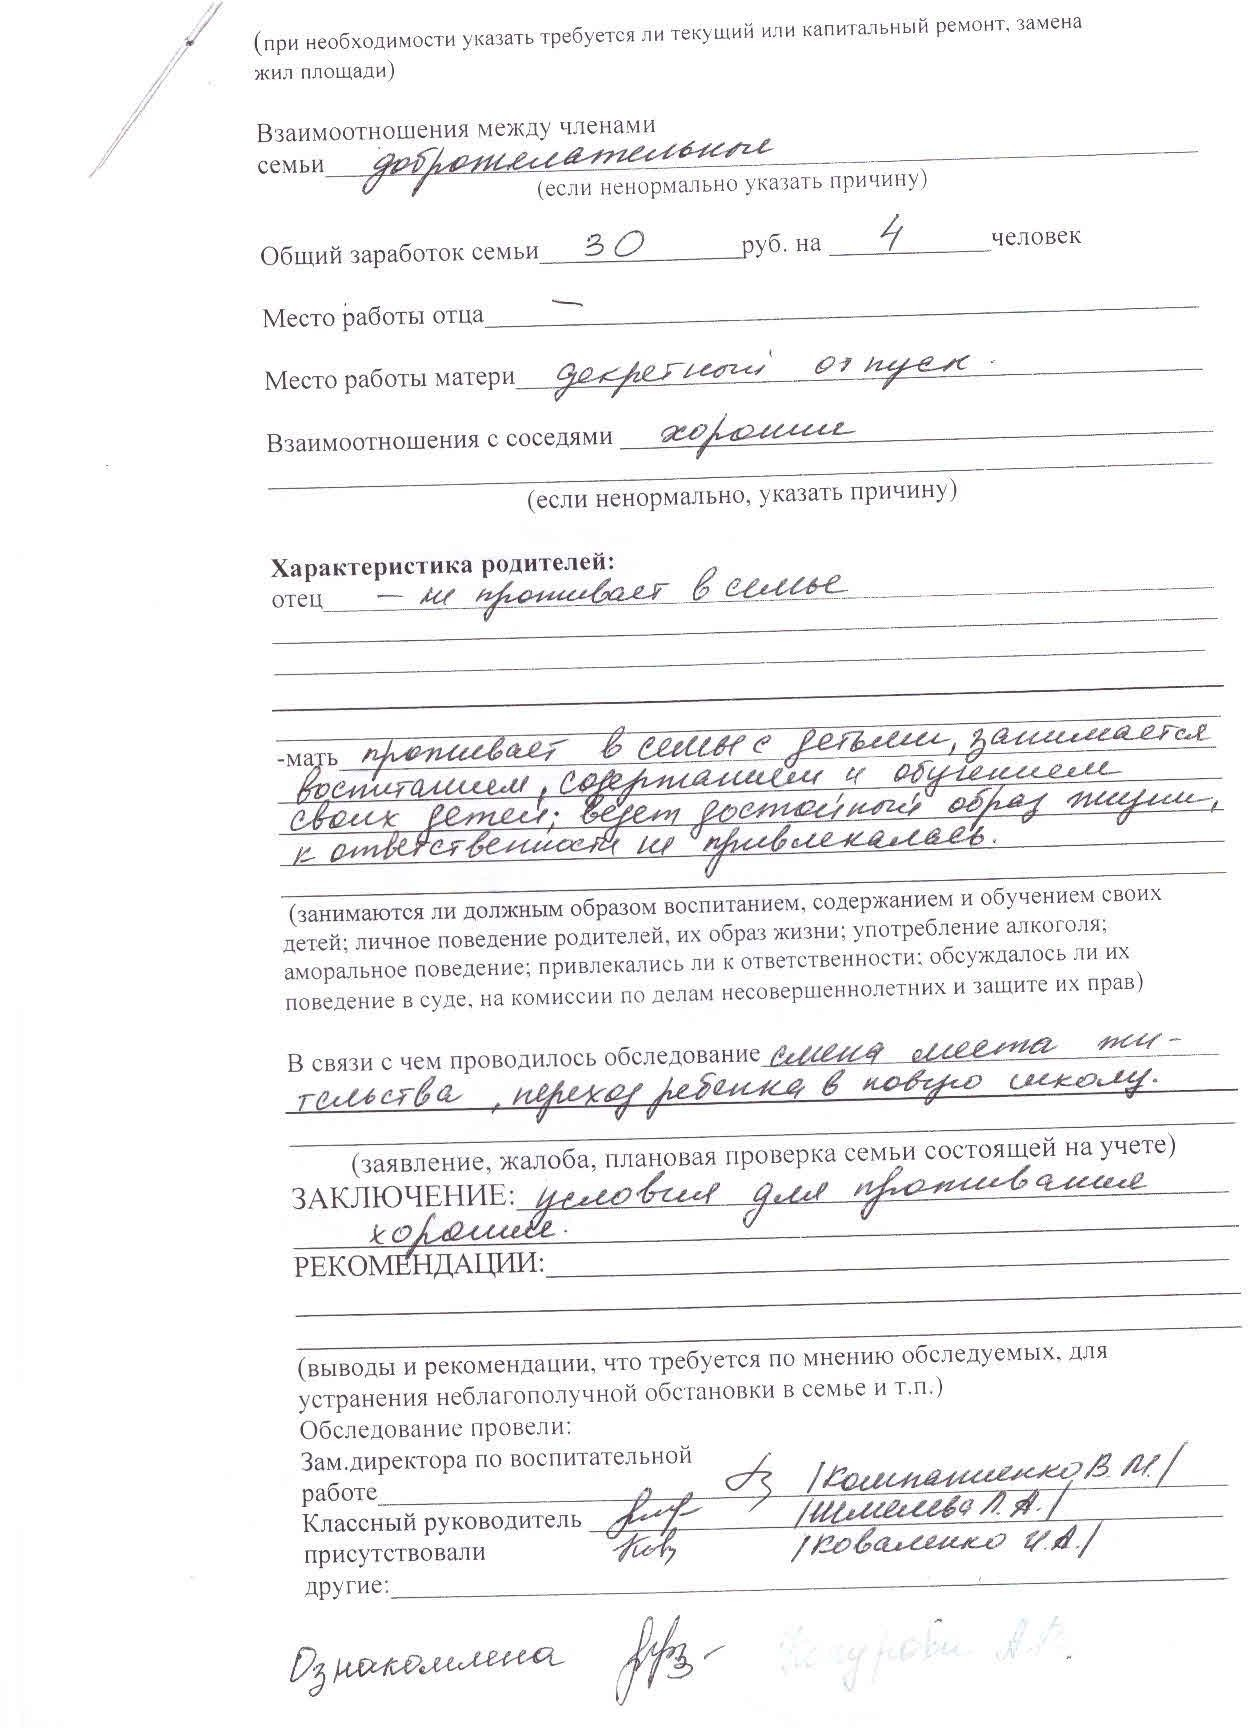 (при необходимости указать требуется ли текущий или капитальный ремонт, замена
жил площади)
Взаимоотношения между членами
семьи доброжелательные
(если ненормально указать причину)
Общий заработок семьи 30 руб. на 4 человек
Место работы отца —
Место работы матери декретный отпуск.
Взаимоотношения с соседями хорошие
(если ненормально, указать причину)
Характеристика родителей:
отец — не проживает в семье
-мать проживает в семье с детьми, занимается
воспитанием, содержанием и обучением
своих детей; ведет достойный образ жизни,
к ответственности не привлекалась.
(занимаются ли должным образом воспитанием, содержанием и обучением своих
детей; личное поведение родителей, их образ жизни; употребление алкоголя;
аморальное поведение; привлекались ли к ответственности; обсуждалось ли их
поведение в суде, на комиссии по делам несовершеннолетних и защите их прав)
В связи с чем проводилось обследование смена места жи-
тельства, переход ребенка в новую школу.
(заявление, жалоба, плановая проверка семьи состоящей на учете)
ЗАКЛЮЧЕНИЕ: условия для проживания
хорошие.
РЕКОМЕНДАЦИИ:
(выводы и рекомендации, что требуется по мнению обследуемых, для
устранения неблагополучной обстановки в семье и т.п.)
Обследование провели:
Зам.директора по воспитательной
работе /Компаниенко В.М./
Классный руководитель /Шмелева Л.А./
присутствовали /Коваленко И.А./
другие:
Ознакомлена